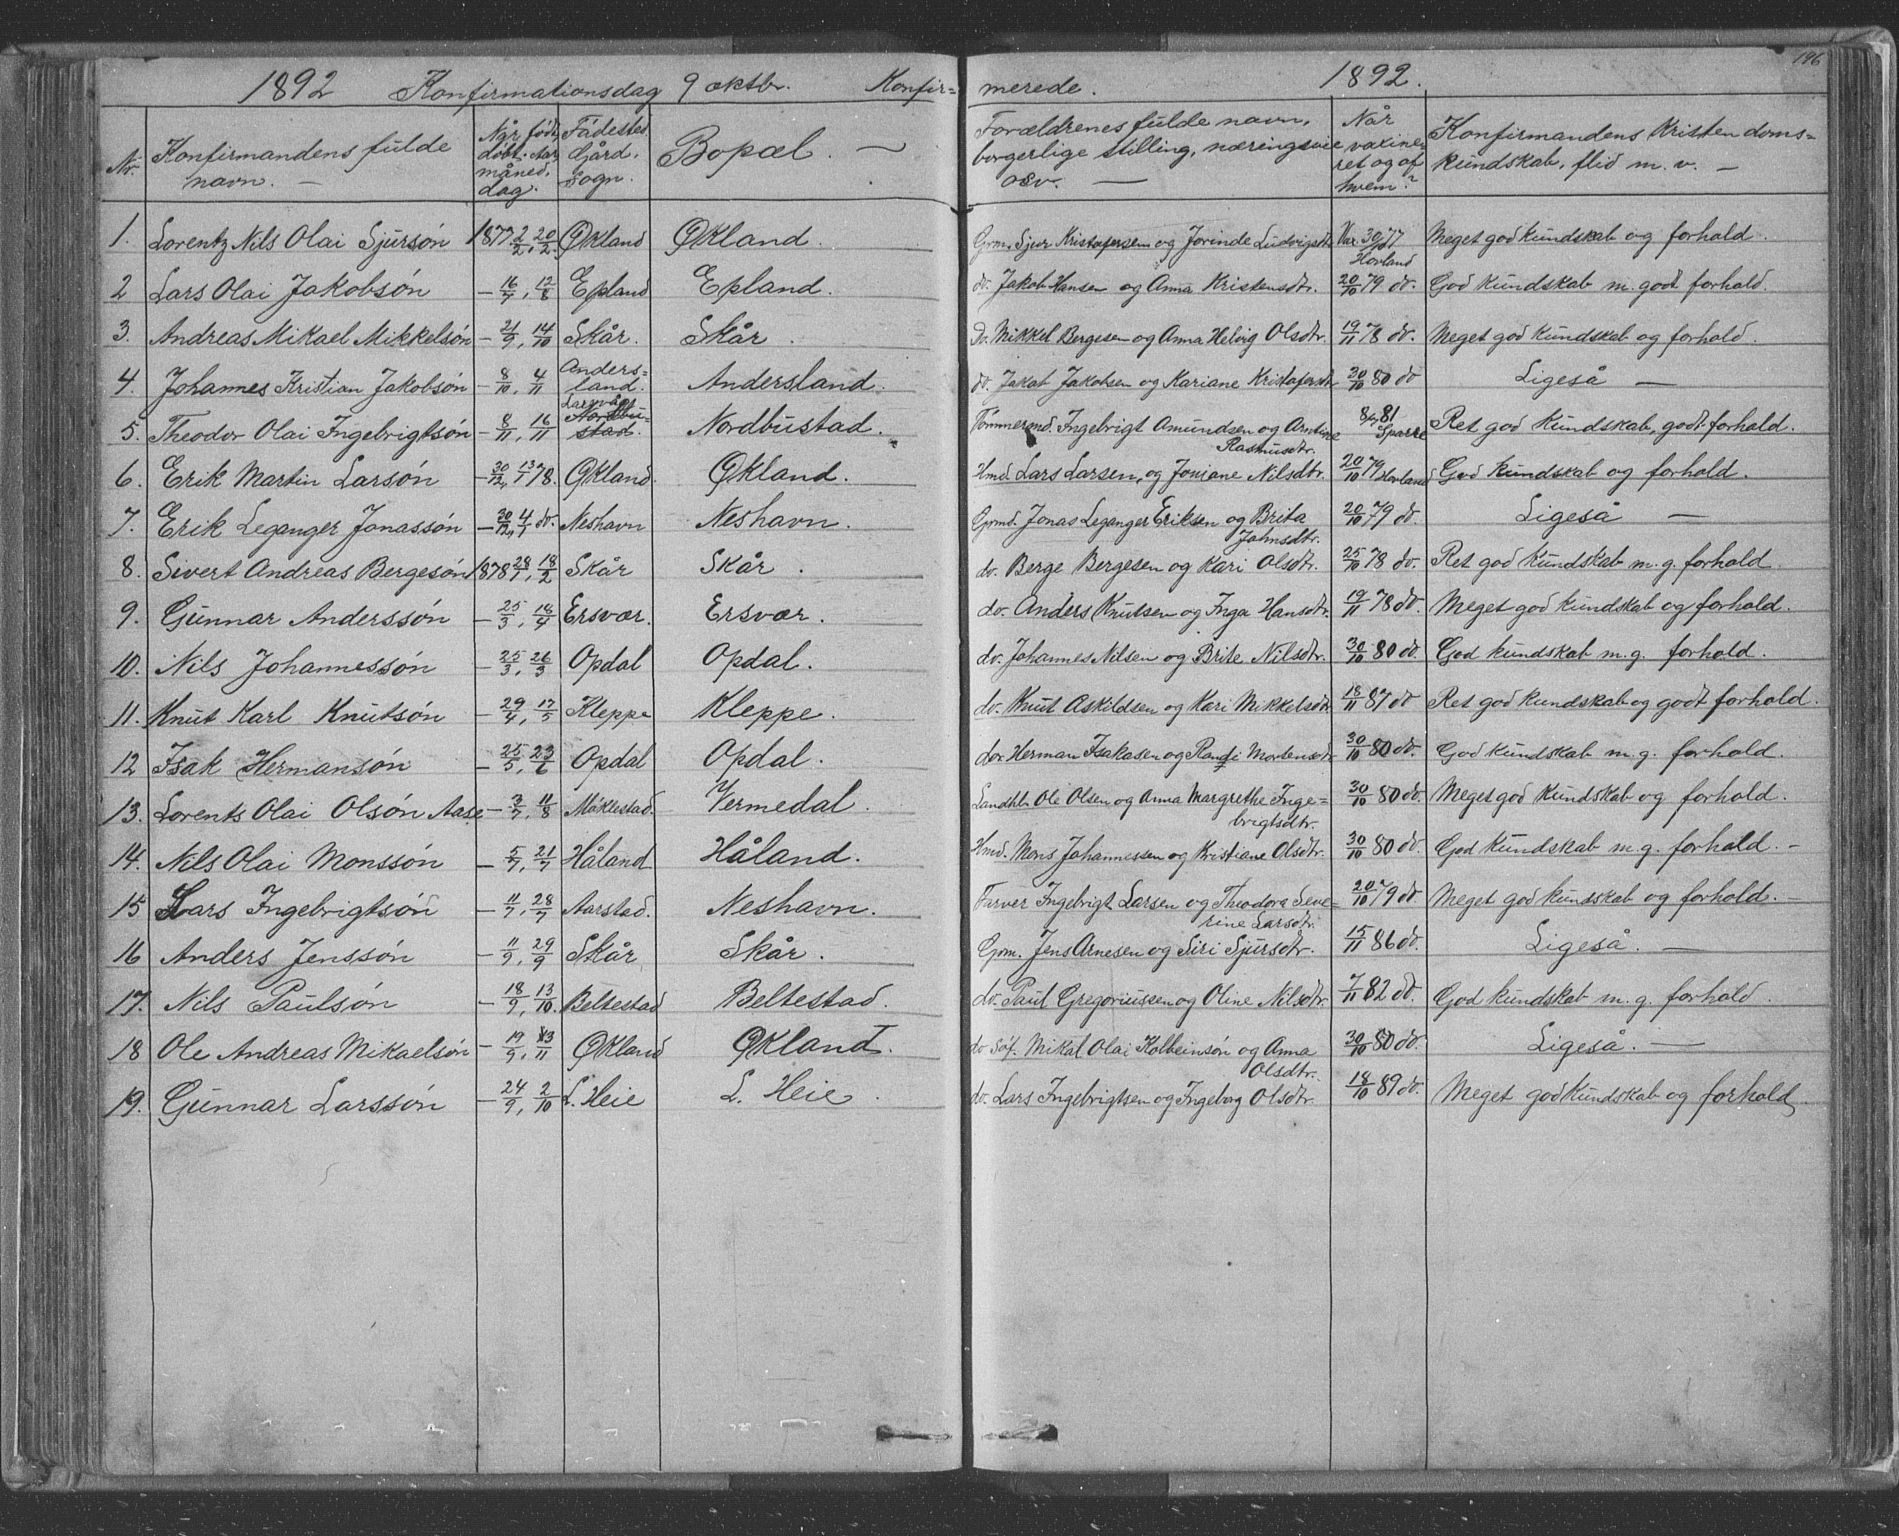 1892 Konfirmationsdag 9 oktbr. Konfir=
merede. 1892. 196
Nr. Konfirmandens fulde navn. — Når født, døbt. Aar, måned, dag. Fødested. Gård, sogn. Bopæl. — Forældrenes fulde navn, borgerlige stilling, næringsvei osv. — Når vaxineret og af hvem? Konfirmandens kristendoms=kundskab, flid m. v. —
1. Lorentz Nils Olai Sjursøn 1877 2/2, 20/2 Økland Økland. Grm. Sjur Kristofersen og Jorinde Ludvigsdtr Var. 30/10 77 Hovland Meget god kundskab og forhold
2 Lars Olai Jakobsøn — 16/7, 12/8 Epland Epland. do. Jakob Hansen og Anna Kristensdtr. 20/10 79 do. God kundskab m. godt forhold.
3. Andreas Mikael Mikkelsøn — 21/9, 14/10 Skår. Skår. do. Mikkel Bergesen og Anna Helvig Olsdtr. 19/11 78 do. Meget god kundskab og forhold.
4. Johannes Kristian Jakobsøn — 8/10, 4/11 Anders=land. Andersland. do. Jakob Jakobsen og Kariane Kristofersdtr 30/10 80 do Ligeså —
5. Theodor Olai Ingebrigtsøn — 8/11, 16/11 Nordbu=stad. Nordbustad. Tømmermd. Ingebrigt Amundsen og Amtine Rasmusdtr. 81 Sparre Ret god kundskab, godt forhold.
6. Erik Martin Larsøn — 30/12, 13/1 78. Økland. Økland. Hmd. Lars Larsen, og Joniane Nilsdtr. 20/10 79 Hovland God kundskab og forhold.
7. Erik Leganger Jonassøn — 30/12, 4/1 do. Neshavn Neshavn. Grmd. Jonas Leganger Eriksen og Brita Johnsdtr. 20/10 79 do. Ligeså —
8. Sivert Andreas Bergesøn 1878 28/1, 18/2 Skår Skår. do. Berge Bergesen og Kari Olsdtr. 25/10 78 do. Ret god kundskab m. g. forhold.
9. Gunnar Anderssøn — 25/3, 18/4 Ersvær. Ersvær. do. Anders Knutsen og Inga Hansdtr. 19/11 78 do. Meget god kundskab og forhold.
10. Nils Johannessøn — 25/3, 26/3 Opdal Opdal. do. Johannes Nilsen og Brite Nilsdtr. 30/10 80 do. God kundskab m. g. forhold.
11. Knut Karl Knutsøn — 29/4, 17/5 Kleppe Kleppe. do. Knut Askildsen og Kari Mikkelsdtr 18/11 87 do Ret god kundskab og godt forhold.
12 Isak Hermansøn — 25/5, 23/6 Opdal Opdal. do. Herman Isaksen og Randi Mortensdtr 30/10 80 do. God kundskab m. g. forhold.
13. Lorents Olai Olsøn Aase — 3/7, 11/8 Møklestad. Vermedal. Landhl. Ole Olsen og Anna Margrethe Inge=brigtsdtr. 30/10 80 do. Meget god kundskab og forhold.
14. Nils Olai Monssøn — 5/7, 21/7 Håland Håland. Hmd. Mons Johannessen og Kristiane Olsdtr. 30/10 80 do. God kundskab m. g. forhold. —
15 Lars Ingebrigtsøn — 11/7, 28/7 Aarstad. Neshavn. Farver Ingebrigt Larsen og Theodora Seve=rine Larsdtr. 20/10 79 do. Meget god kundskab og forhold. —
16 Anders Jenssøn — 11/9, 29/9 Skår Skår. Grm. Jens Arnesen og Siri Sjursdtr. 15/11 86 do. Ligeså. —
17. Nils Paulsøn — 18/9, 13/10. Beltestad Beltestad. do. Paul Gregoriussen og Oline Nilsdtr. 7/11 82 do. God kundskab m. g. forhold.
18 Ole Andreas Mikaelsøn — 19/9, 13/11 Økland Økland. do Søf. Mikal Olai Kolbeinsøn og Anna Olsdtr. 30/10 80 do. Ligeså. —
19. Gunnar Larssøn — 24/9, 2/10 L. Heie L. Heie. do. Lars Ingebrigtsen og Ingeborg Olsdtr. 18/10 89 do. Meget god kundskab og forhold